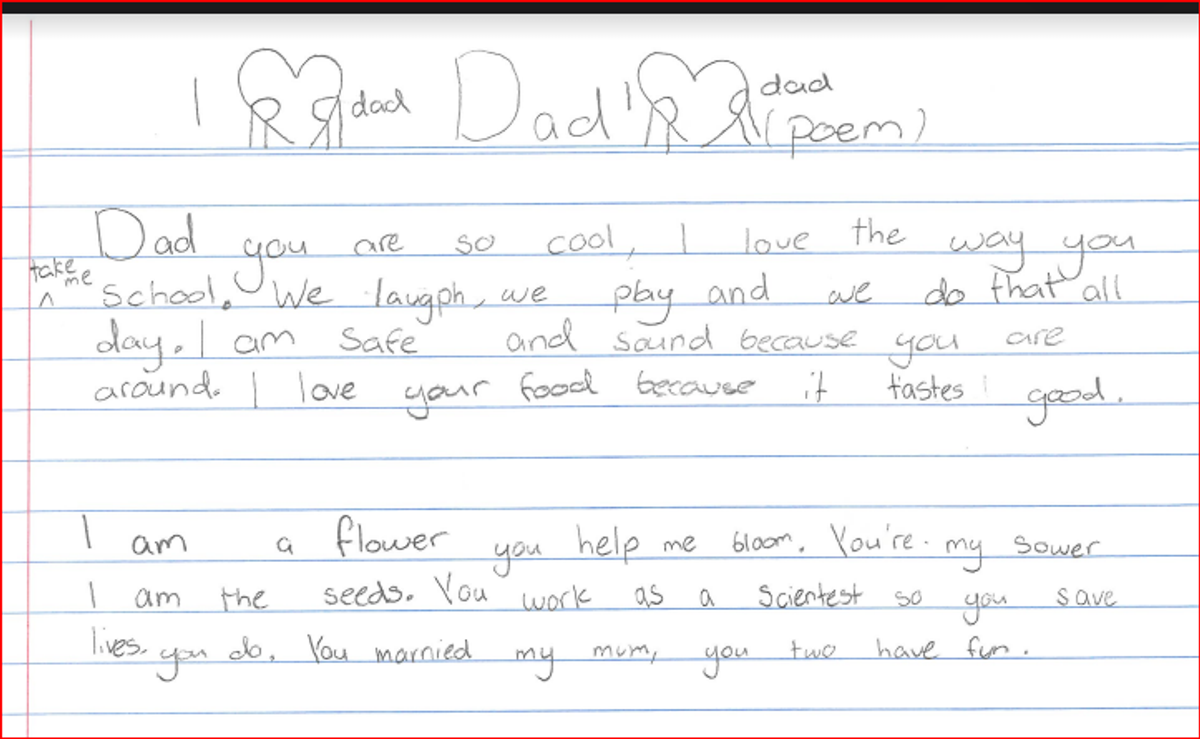 I dad Dad I dad
(poem)
Dad you are so cool, I love the way you
take me
^ school. We laugph, we play and we do that all
day. I am safe and sound because you are
around. I love your food because it tastes good.
I am a flower you help me bloom. You're my sower
I am the seeds. You work as a Scientest so you save
lives you do. You married my mum, you two have fun.